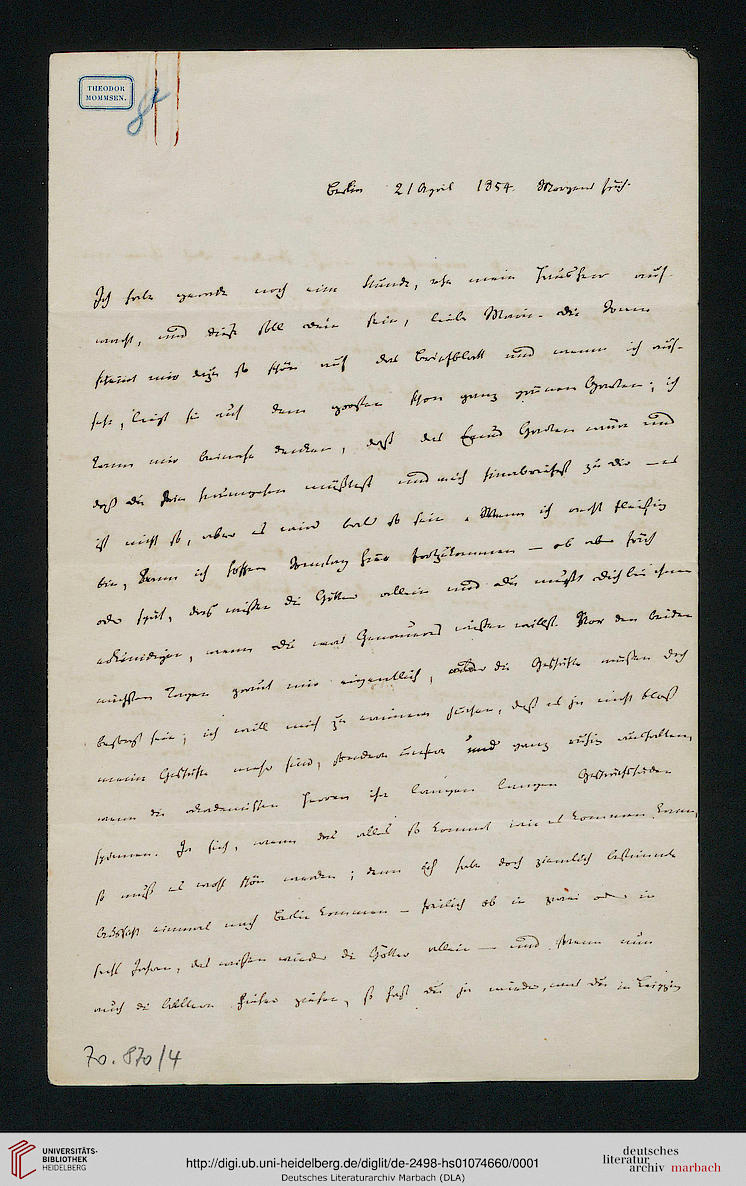 THEODOR
MOMMSEN.
84
Berlin 21 April 1854. Morgens früh.
Ich habe gerade noch eine Stunde, ehe mein Hausherr auf-
wacht, und diese soll dein sein, liebe Marie. Die Sonne
scheint mir dazu so schön auf das Briefblatt und wenn ich auf-
sehe, liegt sie auf dem großen schon ganz grünen Garten; ich
kann mir beinahe denken, daß das Garten wäre und
daß du müßtest und mich zu dir — es
ist nicht so, aber es wird bald so sein. Wenn ich recht fleißig
bin, kann ich hoffen Dienstag hier fortzukommen — ob aber früh
oder spät, das wissen die Götter allein und du mußt dich bei ihnen
erkundigen, wenn du was Genaueres wissen willst. Vor den beiden
nächsten Tagen graut mir eigentlich, die Geschäfte müssen doch
besorgt sein; ich will mich zu erinnern suchen, daß es ja nicht bloß
meine Geschäfte mehr sind, sondern unsere und ganz ruhig aushalten,
wenn die akademischen Herren ihre langen langen
spinnen. Ja sieh, wenn das alles so kommt wie es kommen kann,
so muß es wohl schön werden; denn ich habe doch ziemlich bestimmte
einmal nach Berlin kommen — freilich ob in zwei oder in
sechs Jahren, das wissen wieder die Götter allein — und wenn nun
auch die Eltern hieher ziehen, so hast du ja wieder, was du in Leipzig
70.870/4
UNIVERSITÄTS-
BIBLIOTHEK
HEIDELBERG
http://digi.ub.uni-heidelberg.de/diglit/de-2498-hs01074660/0001
Deutsches Literaturarchiv Marbach (DLA)
deutsches
literatur
archiv marbach